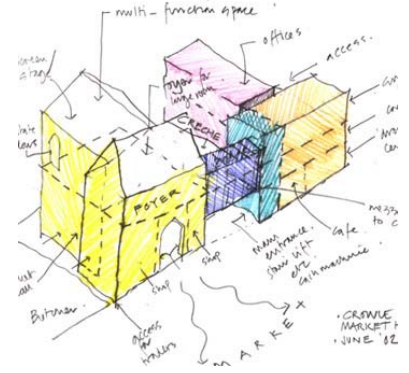 multi-function space
offices
access.
stage
organ for
large room
CRECHE
FOYER
shop
shop
main
entrance
stair lift
etc
cash machine
cafe
mezz
to c
Butcher
access
for
traders
MARKET
• CROWLE
MARKET H
• JUNE '02